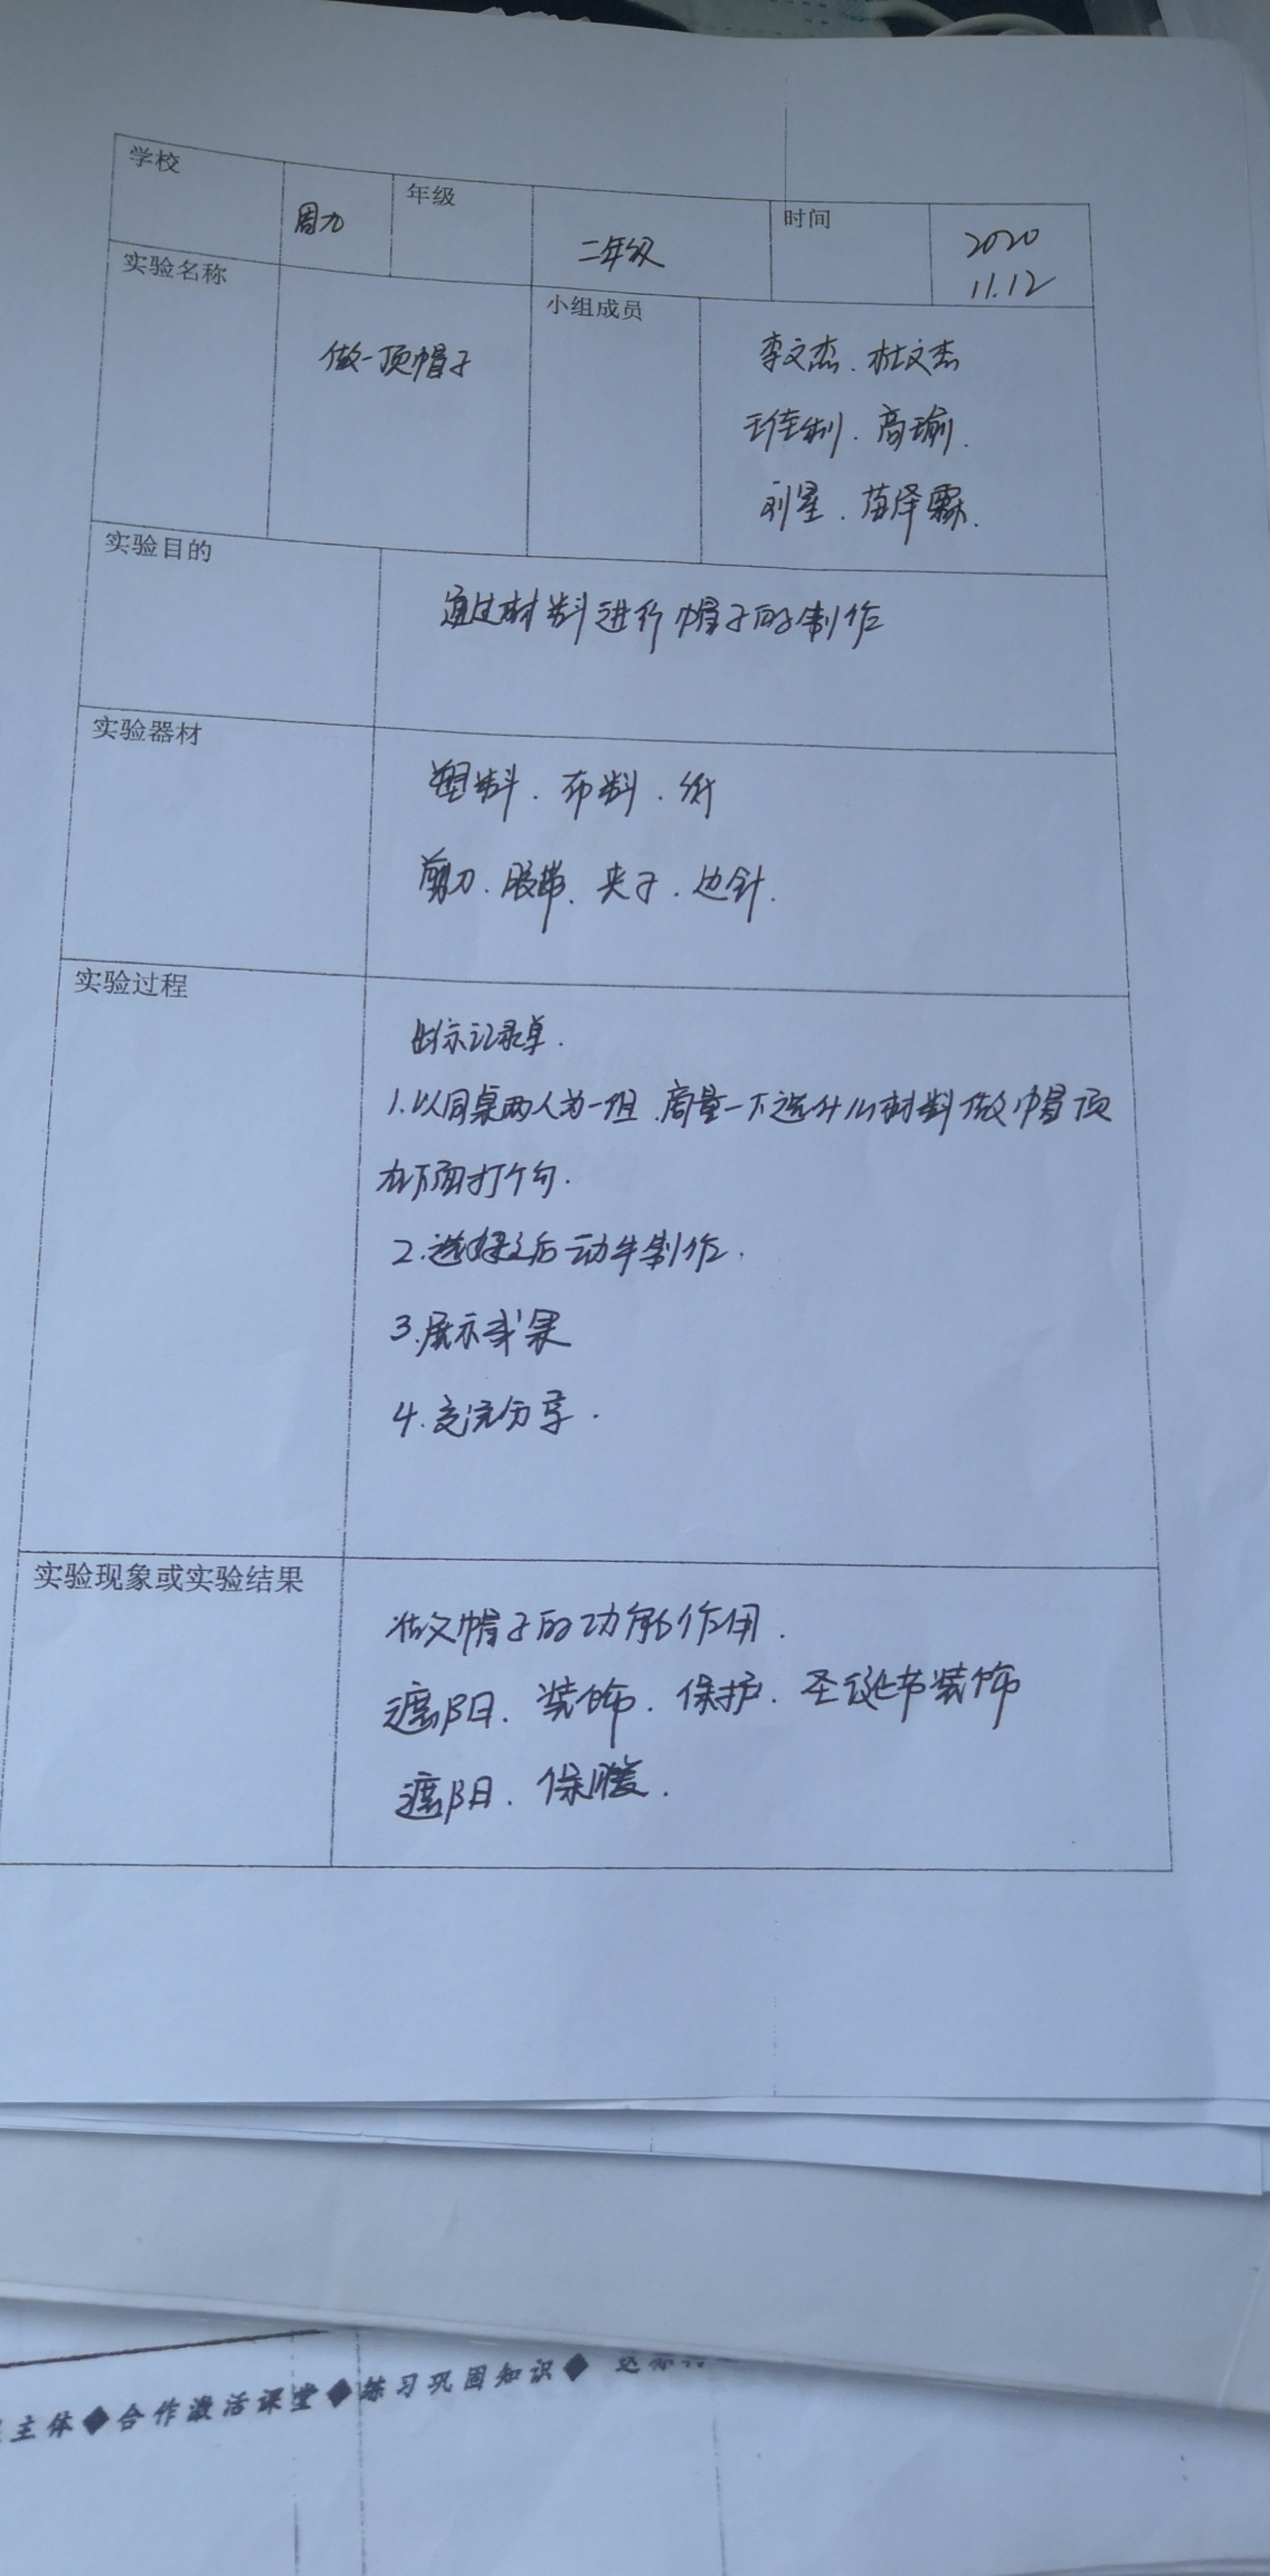 学校
周九
年级
二年级
时间
2020
11.12
实验名称
做一顶帽子
小组成员
李文杰、杜文杰
王佳制、高瑜、
刘星、苗泽霖、
实验目的
通过材料进行帽子的制作
实验器材
塑料、布料、纸
剪刀、胶带、夹子、边针、
实验过程
出示记录单.
1.以同桌两人为一组,商量一下选什么材料做帽顶
在下面打个勾.
2.选择之后动手制作.
3.展示成果
4.交流分享.
实验现象或实验结果
做帽子的功能作用.
遮阳、装饰、保护、圣诞节装饰
遮阳、保暖.
主体◆合作激活课堂◆练习巩固知识◆